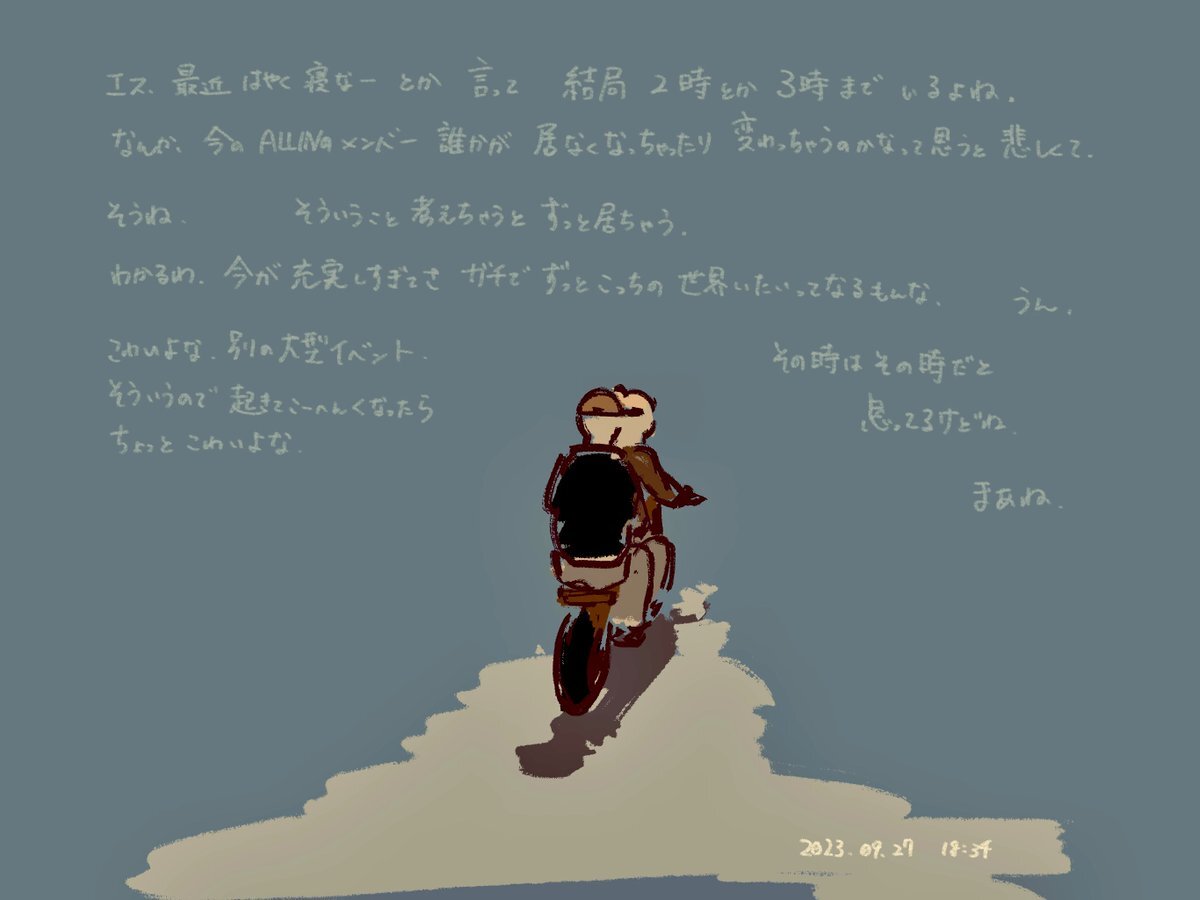 エス、最近 はやく寝なー とか 言って 結局 2時とか 3時まで いるよね.
なんか、今の ALLINのメンバー 誰かが 居なくなっちゃったり 変わっちゃうのかなって思うと 悲しくて.
そうね. そういうこと 考えちゃうと ずっと居ちゃう.
わかるわ. 今が 充実しすぎてさ ガチで ずっと こっちの 世界いたいってなるもんな. うん.
こわいよな. 別の大型イベント.
そういうので 起きてこーへんくなったら
ちょっと こわいよな.
その時は その時だと
思ってるけどね.
まあね.
2023.09.27 18:34